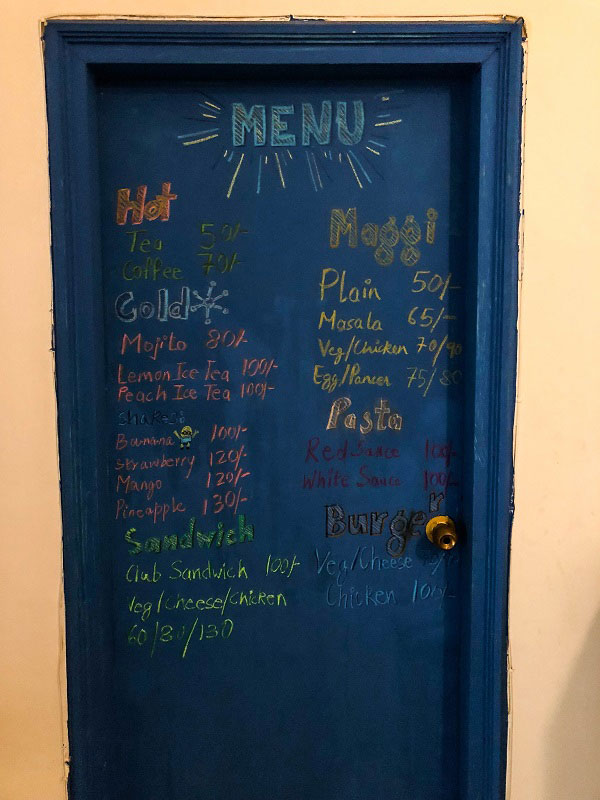 MENU
Hot
Tea 50/-
Coffee 70/-
Cold
Mojito 80/-
Lemon Ice Tea 100/-
Peach Ice Tea 100/-
Shakes:
Banana 100/-
Strawberry 120/-
Mango 120/-
Pineapple 130/-
Sandwich
Club Sandwich 100/-
Veg/Cheese/Chicken
60/80/130
Maggi
Plain 50/-
Masala 65/-
Veg/Chicken 70/90
Egg/Paneer 75/80
Pasta
Red Sauce 100/-
White Sauce 100/-
Burger
Veg/Cheese
Chicken 100/-